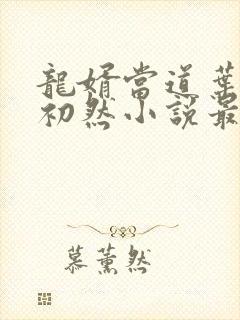 龍婿當道葉
初然小說最
慕薰然